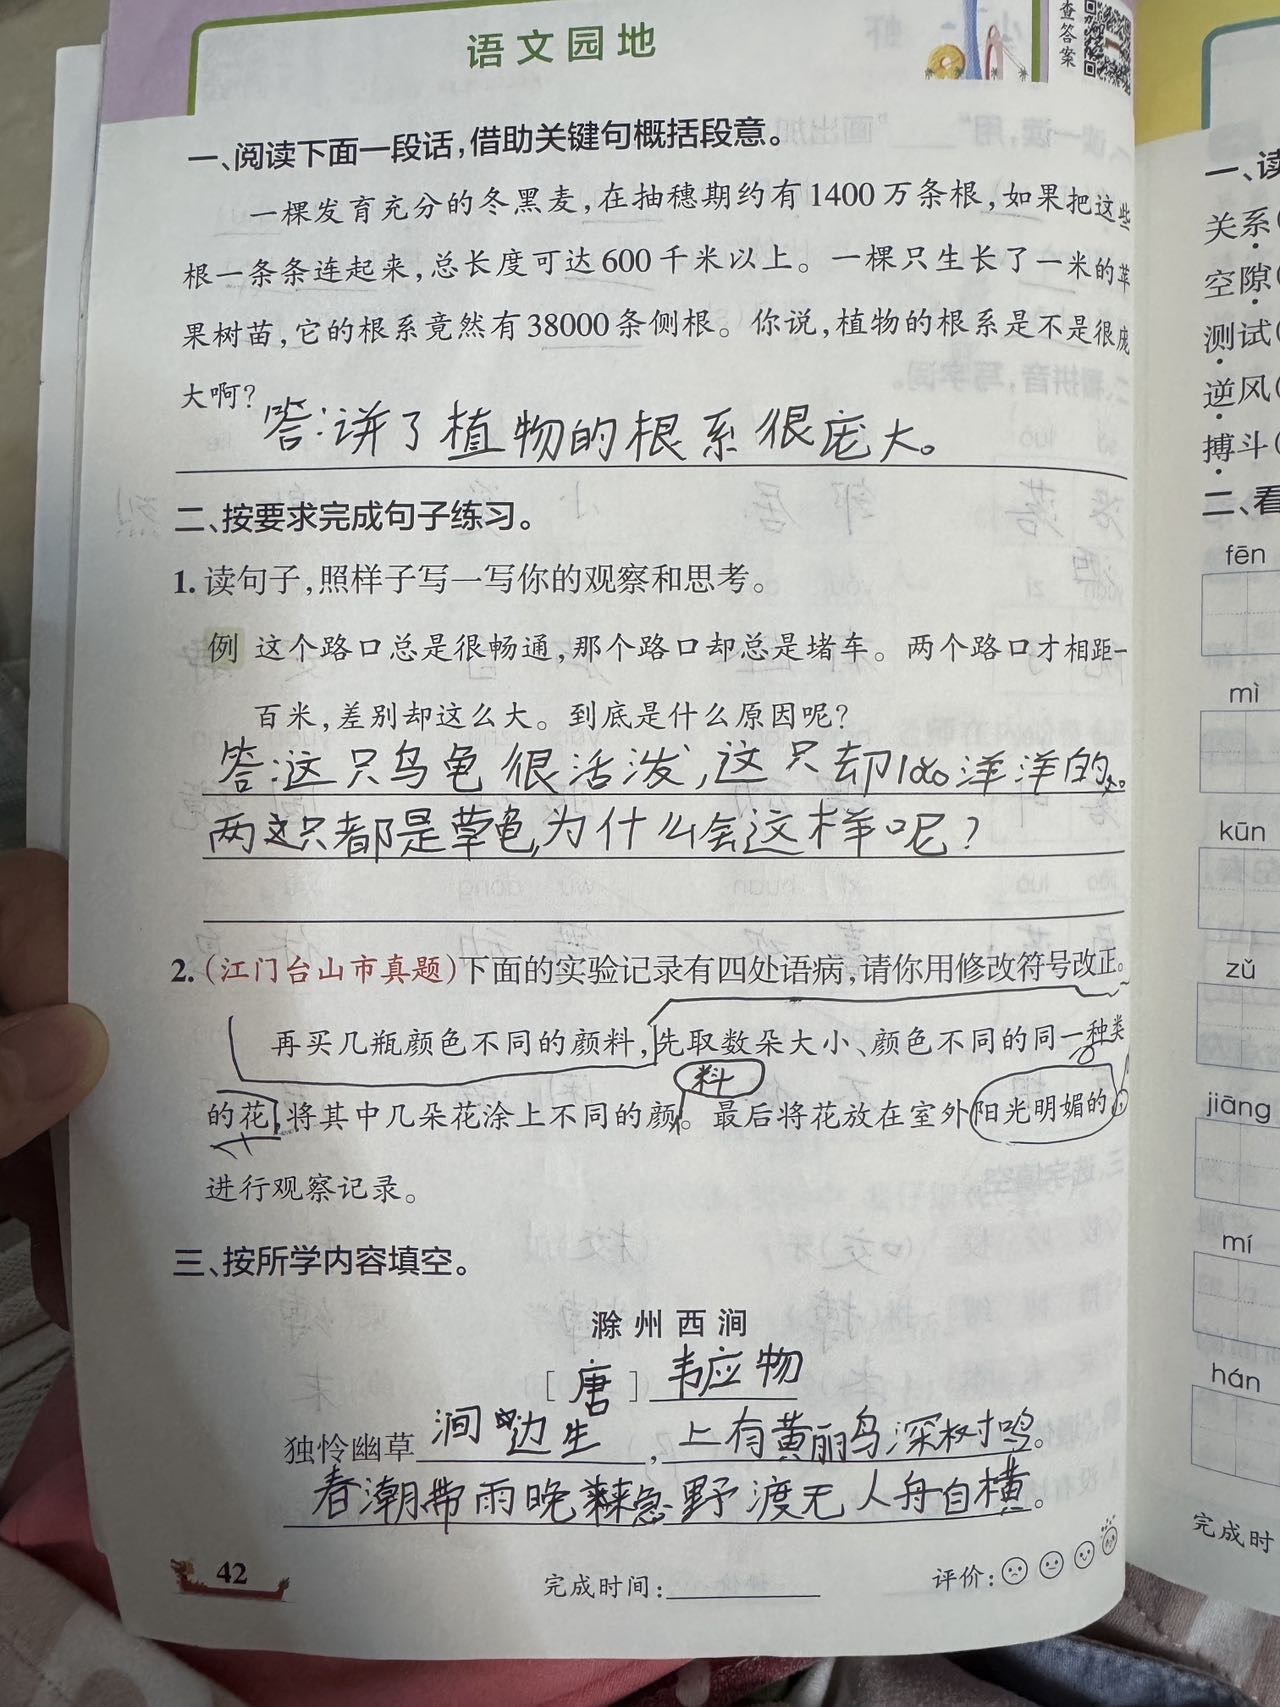 语文园地
查答案
一、阅读下面一段话,借助关键句概括段意。
一棵发育充分的冬黑麦,在抽穗期约有1400万条根,如果把这些
根一条条连起来,总长度可达600千米以上。一棵只生长了一米的苹
果树苗,它的根系竟然有38000条侧根。你说,植物的根系是不是很庞
大啊?
答:讲了植物的根系很庞大。
二、按要求完成句子练习。
1.读句子,照样子写一写你的观察和思考。
例 这个路口总是很畅通,那个路口却总是堵车。两个路口才相距一
百米,差别却这么大。到底是什么原因呢?
答:这只乌龟很活泼,这只却lǎn洋洋的。
两只都是草龟,为什么会这样呢?
2.(江门台山市真题)下面的实验记录有四处语病,请你用修改符号改正。
再买几瓶颜色不同的颜料,先取数朵大小、颜色不同的同一种类
料
的花,将其中几朵花涂上不同的颜。最后将花放在室外阳光明媚的
进行观察记录。
三、按所学内容填空。
滁州西涧
[唐]韦应物
独怜幽草涧边生,上有黄丽鸟深树鸣。
春潮带雨晚来急野渡无人舟自横。
42
完成时间:
评价:
一、读
关系(
空隙(
测试(
逆风(
搏斗(
二、看
fēn
mì
kūn
zǔ
jiāng
mí
hán
完成时